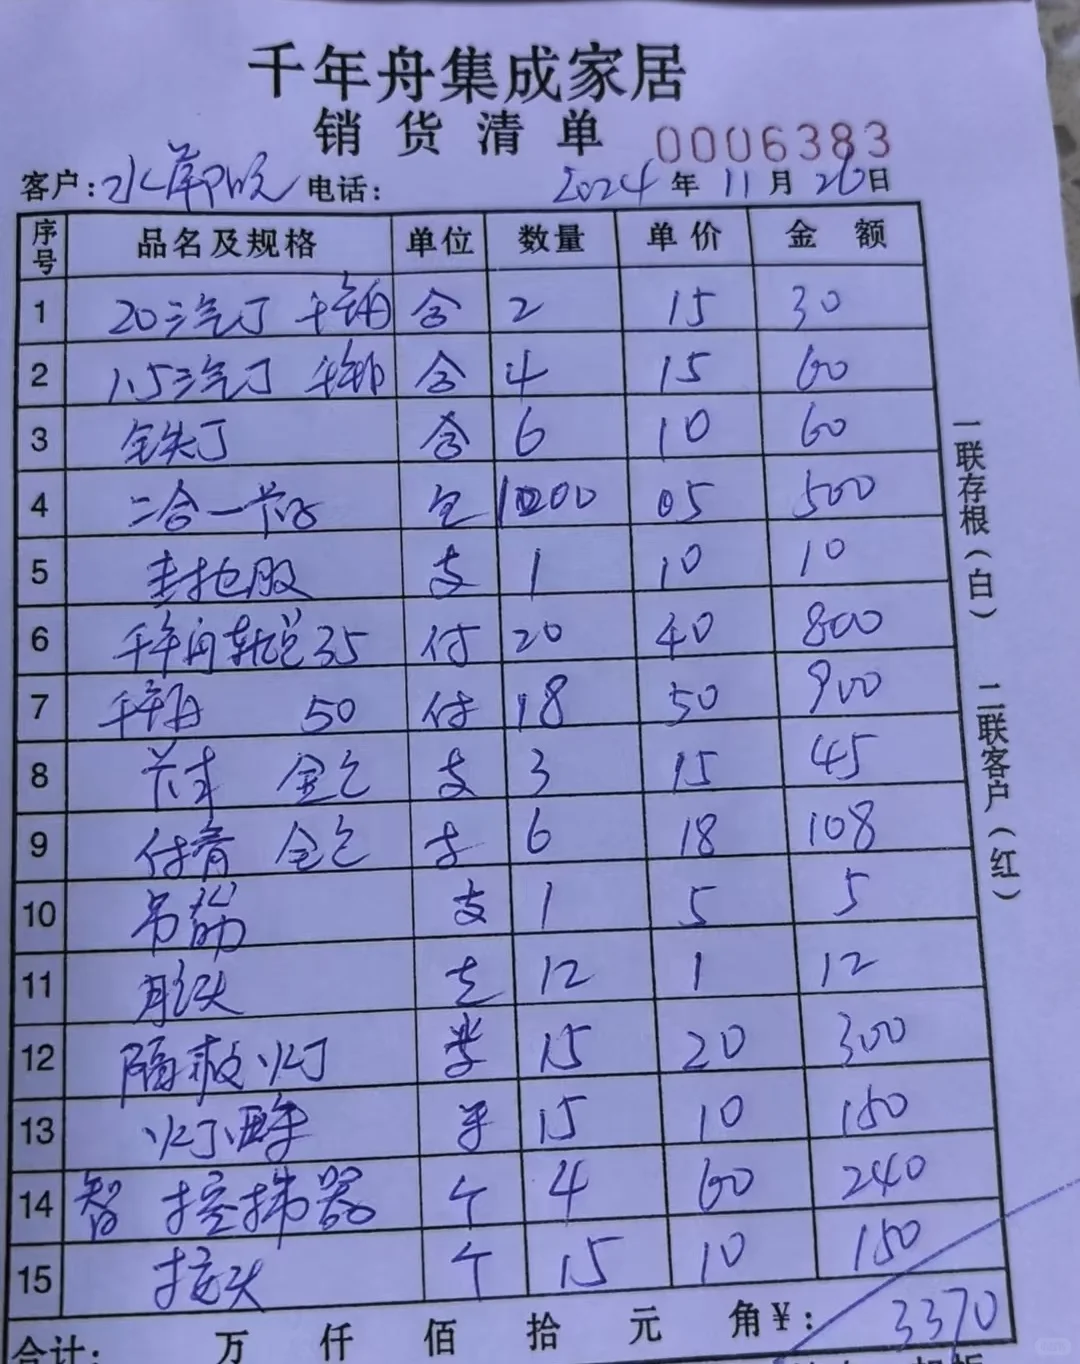 千年舟集成家居
销货清单 0006383
客户: 水 电话: 2024年11月26日
序号 品名及规格 单位 数量 单价 金额
1 20三汽丁 千年舟 合 2 15 30
2 1.53汽丁 合 4 15 60
3 全失丁 合 6 10 60
4 二合一卡子 包 1000 05 500
5 支 1 10 10
6 千年舟轨道35 付 20 40 800
7 千年舟 50 付 18 50 900
8 卡才 全包 支 3 15 45
9 付骨 全包 支 6 18 108
10 吊筋 支 1 5 5
11 支 12 1 12
12 隔板灯 15 20 300
13 灯 15 10 150
14 智 控 器 个 4 60 240
15 接头 个 15 10 150
合计: 万 仟 佰 拾 元 角 ¥: 3370
一联存根(白) 二联客户(红)